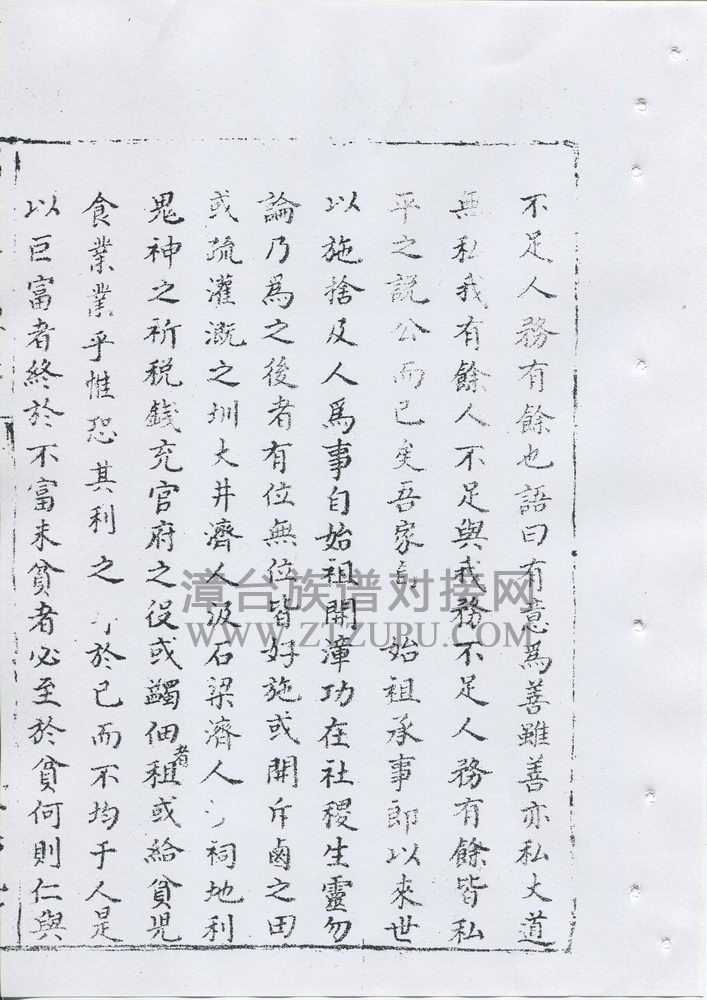 不足人務有餘也語曰有意爲善雖善亦私大道
無私我有餘人不足與我務不足人務有餘皆私
平之説公而已矣吾家 始祖承事郎以來世
以施捨及人爲事自始祖開漳功在社稷生靈勿
論乃爲之後者有位無位皆好施或開斥鹵之田
或疏灌溉之圳大井濟人汲石梁濟人 祠地利
鬼神之祈税錢充官府之役或蠲佃者租或給貧児
食業業乎惟恐其利之 於已而不均于人是
以巨富者終於不富未貧者必至於貧何則仁與
漳台族谱对接网
WWW.ZTZUPU.COM